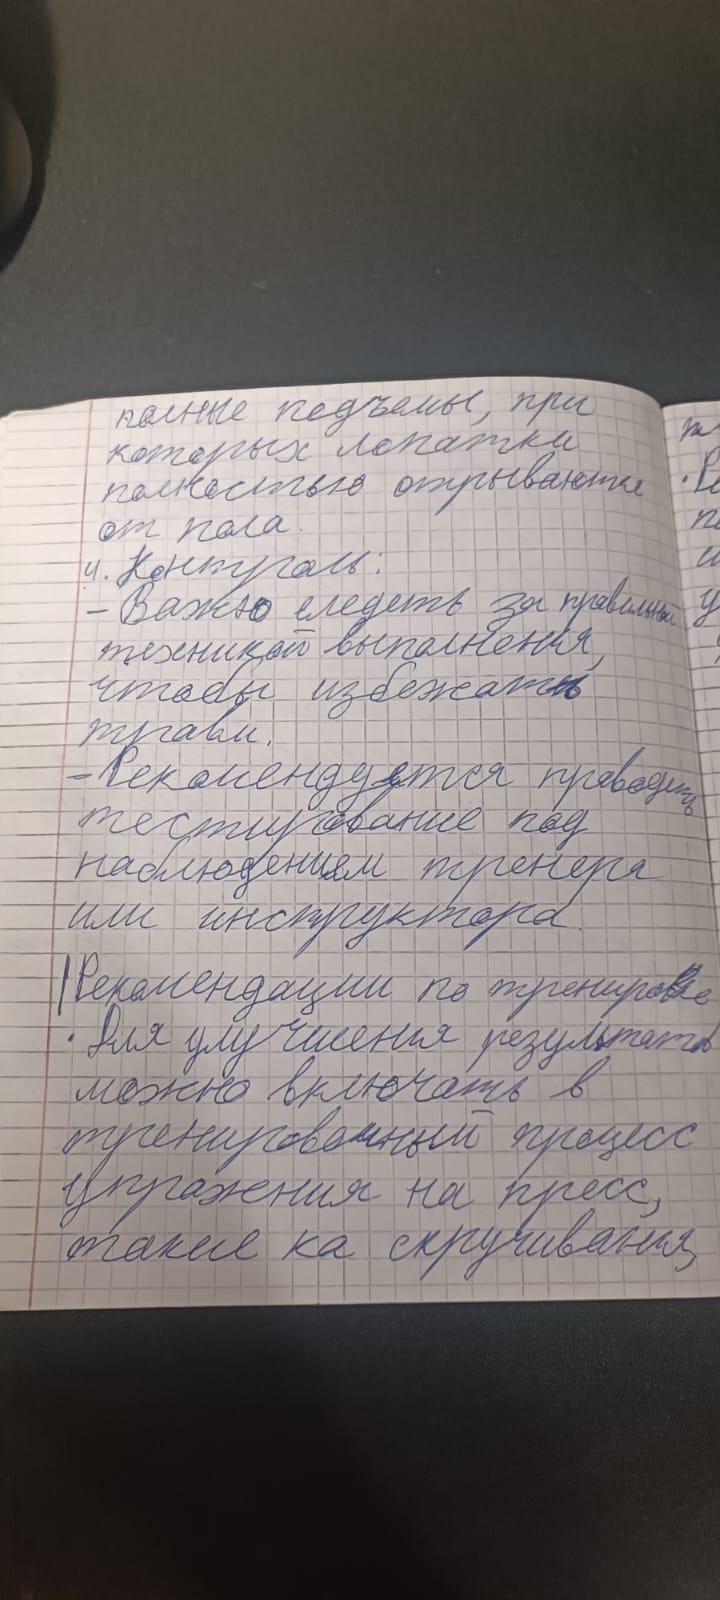 полные подъемы, при
которых лопатки
полностью отрываются
от пола.
4. Контроль:
- Важно следеть за правильной
техникой выполнения,
чтобы избежать
травм.
- Рекомендуется проводить
тестирование под
наблюдением тренера
или инструктора.
Рекомендации по тренировке
• Для улучшения результатов
можно включать в
тренировочный процесс
упражения на пресс,
такие ка скручивания,